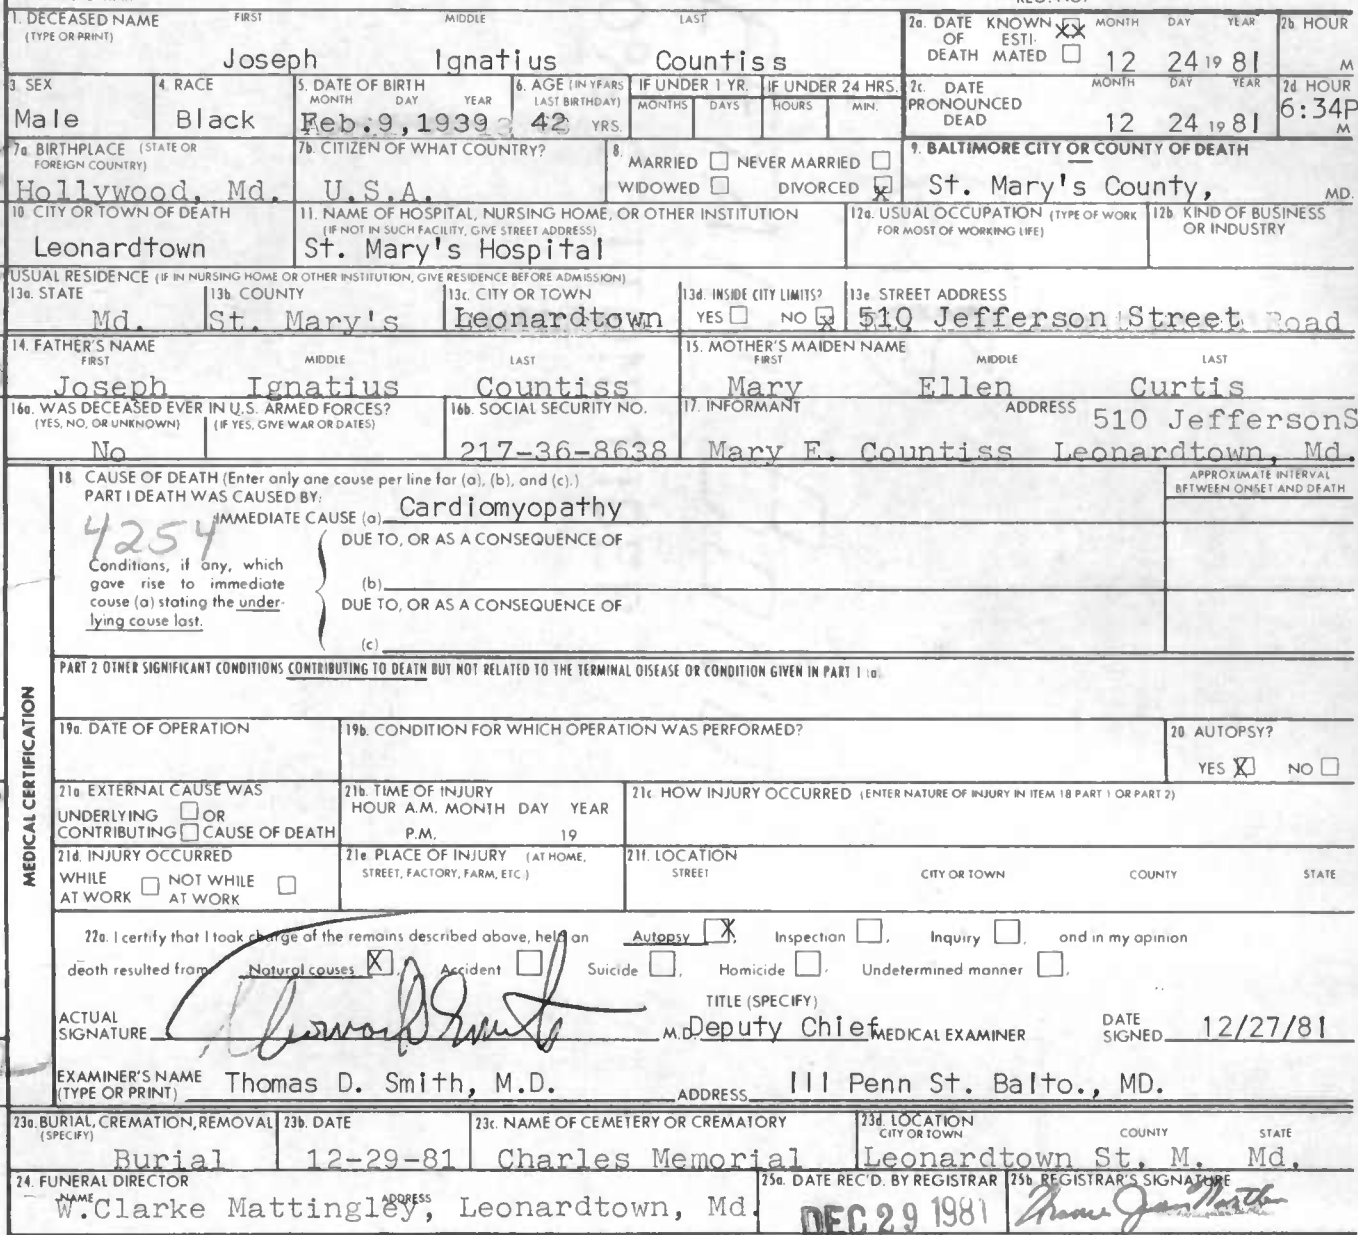 1. DECEASED NAME FIRST MIDDLE LAST
(TYPE OR PRINT)
Joseph Ignatius Countiss
2a. DATE OF DEATH KNOWN XX ESTIMATED MONTH DAY YEAR
12 24 19 81
2b HOUR M
3 SEX
Male
4. RACE
Black
5. DATE OF BIRTH
MONTH DAY YEAR
Feb.9,1939
6. AGE (IN YEARS LAST BIRTHDAY)
42 YRS.
IF UNDER 1 YR.
MONTHS DAYS
IF UNDER 24 HRS.
HOURS MIN.
2c. DATE PRONOUNCED DEAD MONTH DAY YEAR
12 24 19 81
2d HOUR
6:34P M
7a. BIRTHPLACE (STATE OR FOREIGN COUNTRY)
Hollywood, Md.
7b. CITIZEN OF WHAT COUNTRY?
U.S.A.
8. MARRIED NEVER MARRIED
WIDOWED DIVORCED X
9. BALTIMORE CITY OR COUNTY OF DEATH
St. Mary's County, MD.
10 CITY OR TOWN OF DEATH
Leonardtown
11. NAME OF HOSPITAL, NURSING HOME, OR OTHER INSTITUTION
(IF NOT IN SUCH FACILITY, GIVE STREET ADDRESS)
St. Mary's Hospital
12a. USUAL OCCUPATION (TYPE OF WORK FOR MOST OF WORKING LIFE)
12b. KIND OF BUSINESS OR INDUSTRY
USUAL RESIDENCE (IF IN NURSING HOME OR OTHER INSTITUTION, GIVE RESIDENCE BEFORE ADMISSION)
13a. STATE
Md.
13b. COUNTY
St. Mary's
13c. CITY OR TOWN
Leonardtown
13d. INSIDE CITY LIMITS?
YES NO X
13e STREET ADDRESS
510 Jefferson Street Road
14. FATHER'S NAME
FIRST MIDDLE LAST
Joseph Ignatius Countiss
15. MOTHER'S MAIDEN NAME
FIRST MIDDLE LAST
Mary Ellen Curtis
16a. WAS DECEASED EVER IN U.S. ARMED FORCES?
(YES, NO, OR UNKNOWN) (IF YES, GIVE WAR OR DATES)
No
16b. SOCIAL SECURITY NO.
217-36-8638
17. INFORMANT ADDRESS
510 JeffersonS
Mary E. Countiss Leonardtown, Md.
MEDICAL CERTIFICATION
18 CAUSE OF DEATH (Enter only one cause per line for (a), (b), and (c).)
PART I DEATH WAS CAUSED BY:
APPROXIMATE INTERVAL BETWEEN ONSET AND DEATH
IMMEDIATE CAUSE (a) Cardiomyopathy
4254
DUE TO, OR AS A CONSEQUENCE OF
Conditions, if any, which gave rise to immediate cause (a) stating the underlying cause last.
(b)
DUE TO, OR AS A CONSEQUENCE OF
(c)
PART 2 OTHER SIGNIFICANT CONDITIONS CONTRIBUTING TO DEATH BUT NOT RELATED TO THE TERMINAL DISEASE OR CONDITION GIVEN IN PART 1 (a)
19a. DATE OF OPERATION
19b. CONDITION FOR WHICH OPERATION WAS PERFORMED?
20 AUTOPSY?
YES X NO
21a EXTERNAL CAUSE WAS
UNDERLYING OR
CONTRIBUTING CAUSE OF DEATH
21b. TIME OF INJURY
HOUR A.M. MONTH DAY YEAR
P.M. 19
21c HOW INJURY OCCURRED (ENTER NATURE OF INJURY IN ITEM 18 PART 1 OR PART 2)
21d. INJURY OCCURRED
WHILE AT WORK NOT WHILE AT WORK
21e PLACE OF INJURY (AT HOME, STREET, FACTORY, FARM, ETC.)
21f. LOCATION
STREET CITY OR TOWN COUNTY STATE
22a. I certify that I took charge of the remains described above, held an Autopsy X, Inspection , Inquiry , and in my opinion
death resulted from Natural causes X, Accident , Suicide , Homicide , Undetermined manner .
ACTUAL SIGNATURE Thomas D Smith M.D.
TITLE (SPECIFY)
Deputy Chief MEDICAL EXAMINER
DATE SIGNED 12/27/81
EXAMINER'S NAME (TYPE OR PRINT) Thomas D. Smith, M.D.
ADDRESS 111 Penn St. Balto., MD.
23a. BURIAL, CREMATION, REMOVAL (SPECIFY)
Burial
23b. DATE
12-29-81
23c. NAME OF CEMETERY OR CREMATORY
Charles Memorial
23d. LOCATION
CITY OR TOWN COUNTY STATE
Leonardtown St. M. Md.
24. FUNERAL DIRECTOR
NAME ADDRESS
W.Clarke Mattingley, Leonardtown, Md.
25a. DATE REC'D. BY REGISTRAR
DEC 29 1981
25b REGISTRAR'S SIGNATURE